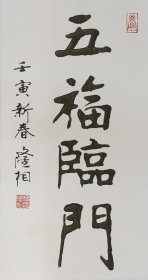 五福臨門
壬寅新春隆相